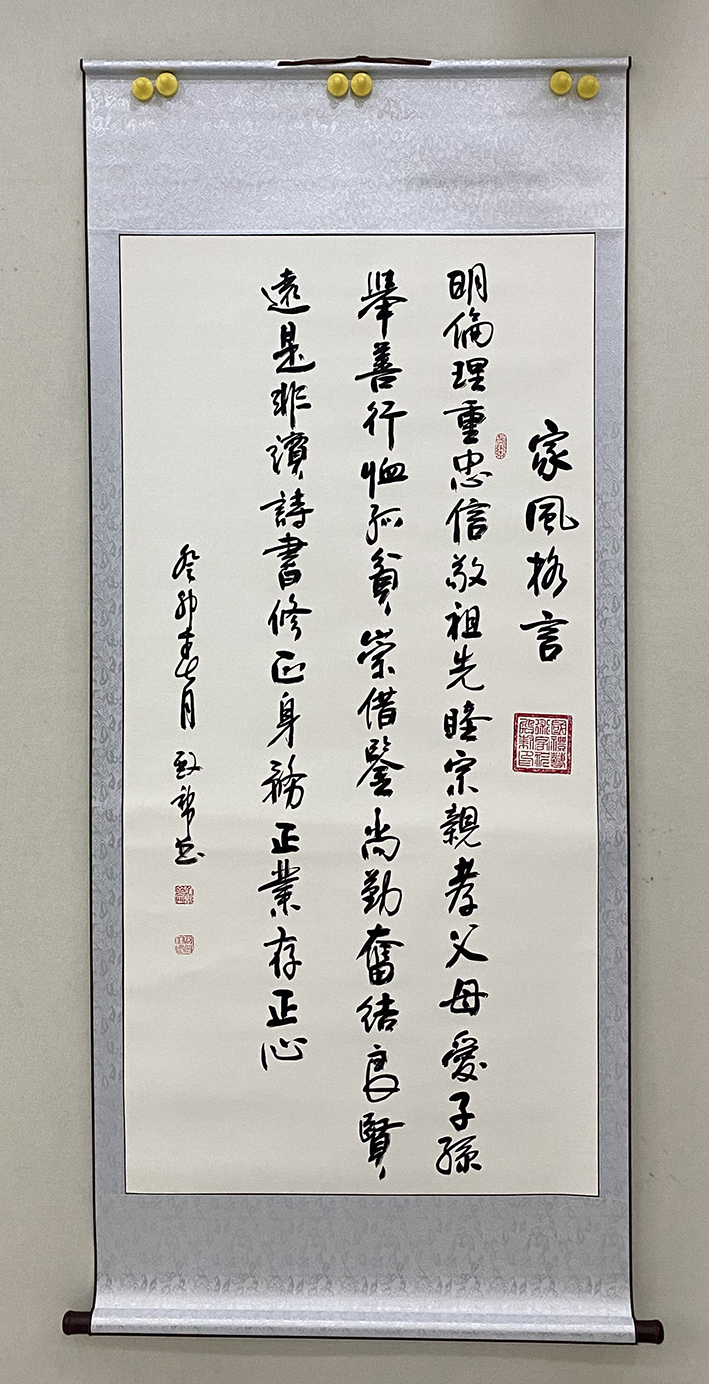 家風格言
明倫理重忠信敬祖先睦宗親孝父母愛子孫
舉善行恤孤貧崇借鑒尚勤奮結良賢
遠是非讀詩書修正身務正業存正心
癸卯春月